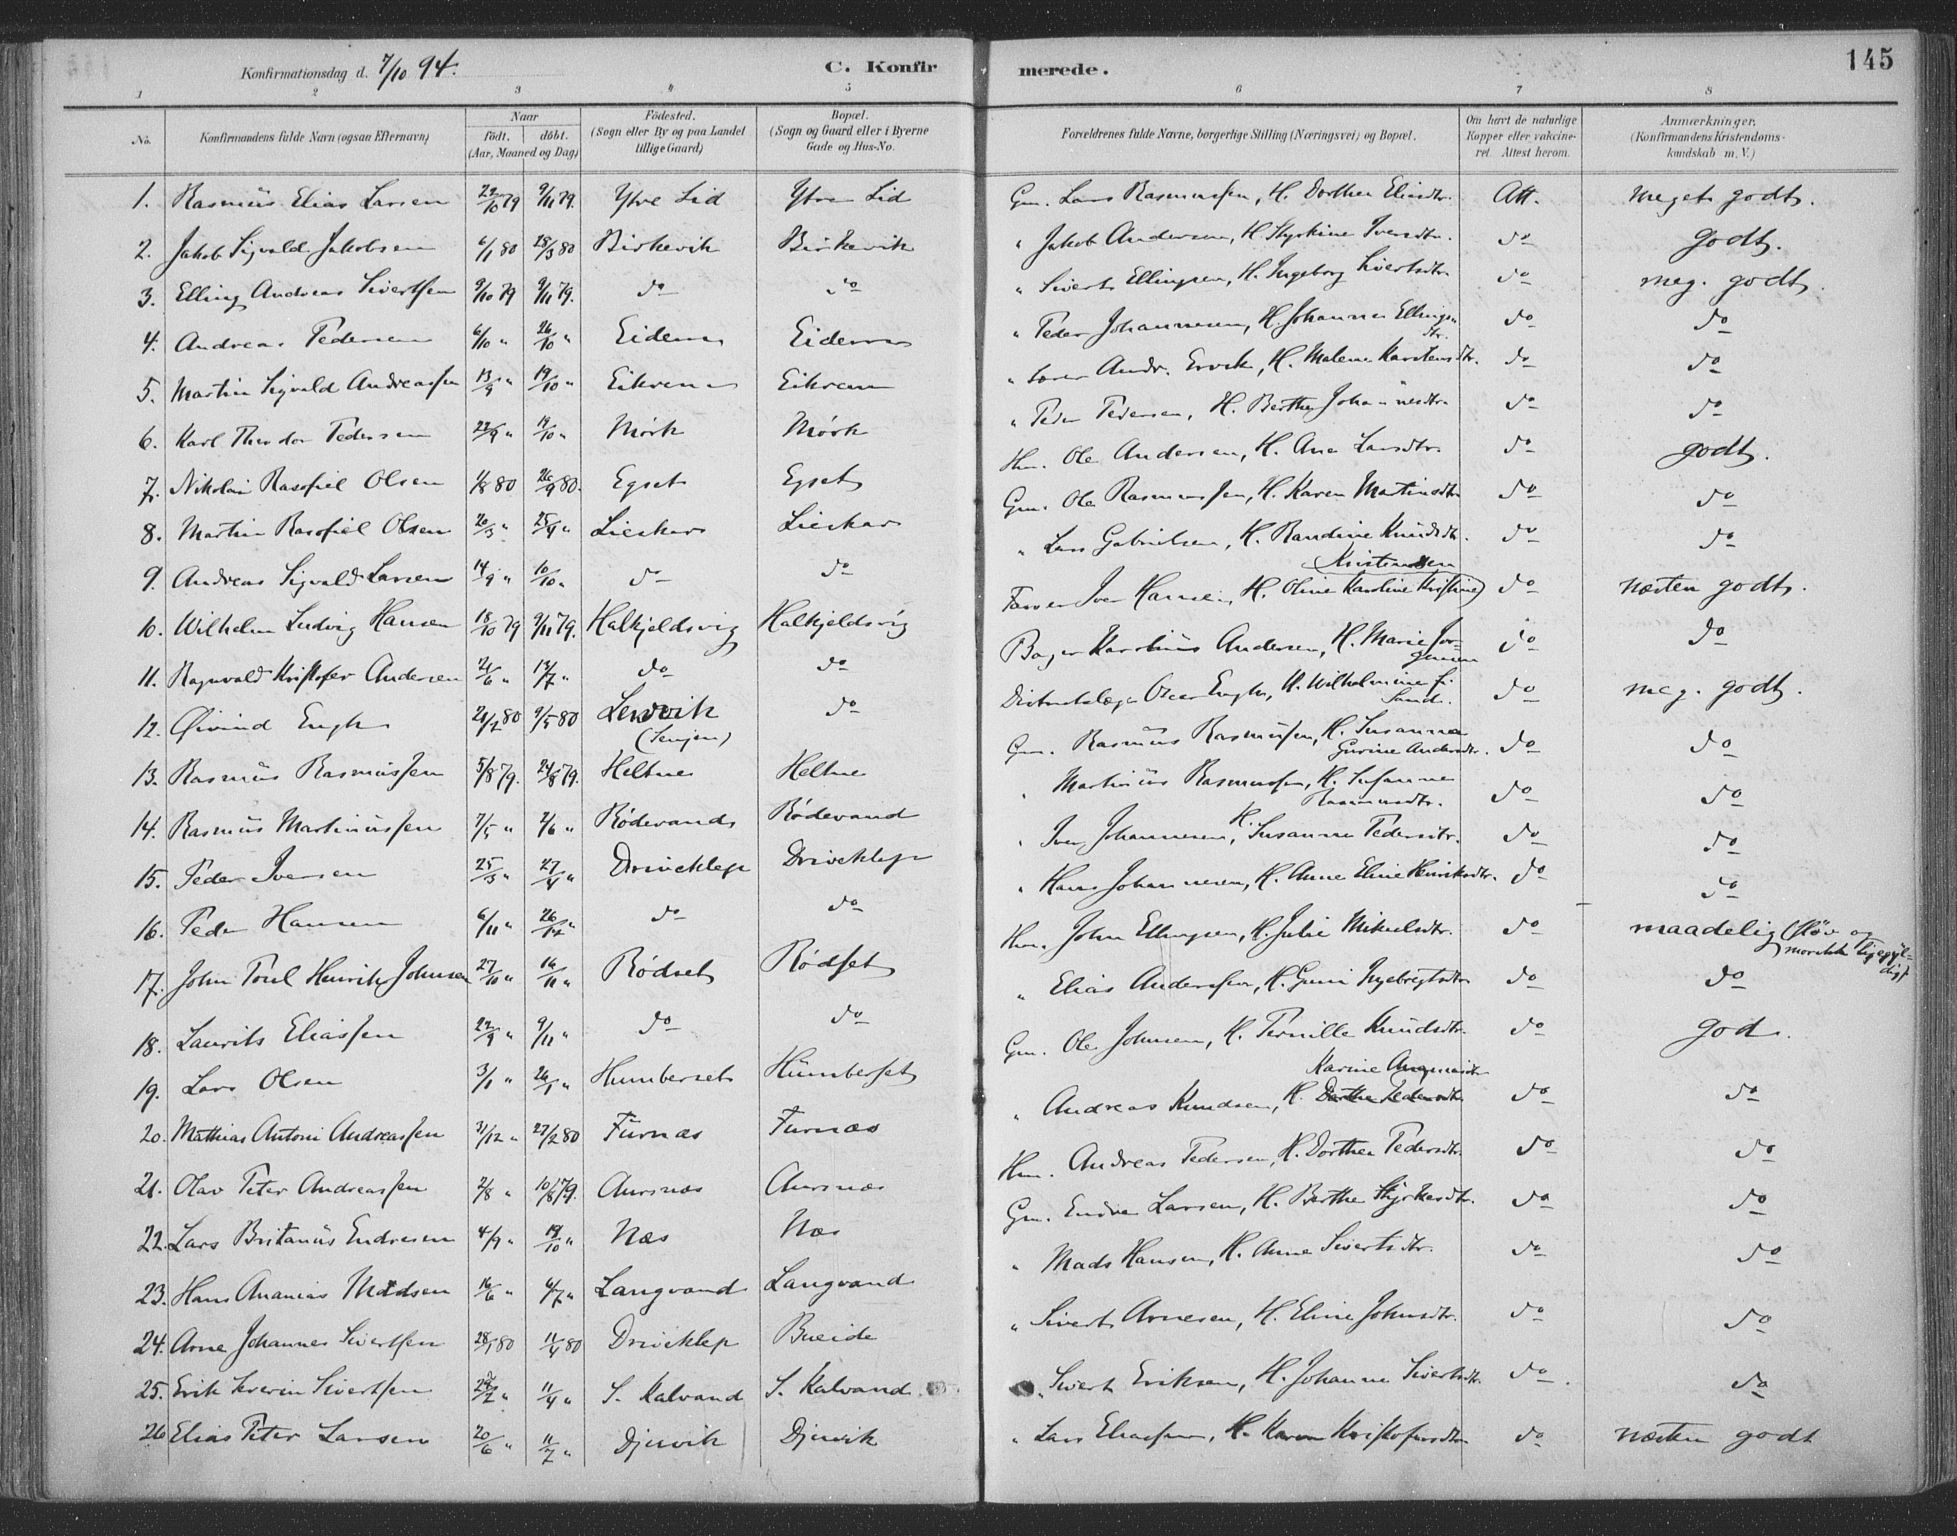 Konfirmationsdag d. 7/10 94.
C. Konfirmerede.
145
1 2 3 4 5 6 7 8
No. Konfirmandens fulde Navn (ogsaa Efternavn) Naar født. døbt. (Aar, Maaned og Dag) Fødested. (Sogn eller By og paa Landet tillige Gaard) Bopæl. (Sogn og Gaard eller i Byerne Gade og Hus-No. Forældrenes fulde Navne, borgerlige Stilling (Næringsvei) og Bopæl. Om havt de naturlige Kopper eller vakcineret. Attest herom. Anmærkninger. (Konfirmandens Kristendomskundskab m. V.)
1. Rasmus Elias Larsen 22/10 79 9/11 79. Ytre Lid Ytre Lid Gm. Lars Rasmussen, H. Dorthea Eliasdtr. Att. meget godt.
2. Jakob Sigvald Jakobsen 6/1 80 28/3 80 Birkevik Birkevik " Jakob Andersen, H. Styrkine Iversdtr. do godt.
3. Elling Andreas Sivertsen 9/10 79 9/11 79. do do " Sivert Ellingsen, H. Ingeborg Sivertsdtr. do meg. godt.
4. Andreas Pedersen 6/10 " 26/10 " Eidem Eidem " Peder Johannesen, H. Johanna Ellingsdtr. do do
5. Martin Sigvald Andreassen 13/9 " 19/10 " Eikrem Eikrem " Andr. Ervik, H. Malene Karstensdtr. do do
6. Karl Theodor Pedersen 22/9 " 19/10 " Mörk Mörk " Peder Pedersen, H. Berthe Johannesdtr. do do
7. Nikolai Rasofiel Olsen 1/8 80 26/9 80. Egset Egset Hm. Ole Andersen, H. Ane Larsdtr. do godt.
8. Martin Rasofiel Olsen 20/3 " 25/4 " Lieskar Lieskar Gm. Ole Rasmussen, H. Karen Martinsdtr. do do
9. Andreas Sigvald Larsen 14/9 " 10/10 " do do " Lars Gabrielsen, H. Randine Knudsdtr. do do
10. Wilhelm Ludvig Hansen 18/10 79 9/11 79. Halkjeldsvig Halkjeldsvig Iver Hansen, H. Oline Karoline Kristine Kristiansen do næsten godt.
11. Ragnvald Kristofer Andersen 21/6 " 13/7 " do do Bager Karolius Andersen, H. Marie Jørgensen do do
12. Øivind Engh 21/2 80 9/5 80 Lenvik (Senjen) do Distriktslæge Oscar Engh, H. Wilhelmine f. Sand. do meg. godt.
13. Rasmus Rasmussen 5/8 79. 24/8 79. Heltne Heltne Gm. Rasmus Rasmussen, H. Susanna Gurine Andersdtr. do do
14. Rasmus Martinussen 7/5 " 2/6 " Rödevand Rödevand " Martinus Rasmussen, H. Susanne Rasmusdtr. do do
15. Peder Iversen 25/3 " 27/4 " Driveklep Driveklep " Iver Johannesen, H. Susanne Pedersdtr. do do
16. Peder Hansen 6/11 " 26/12 " do do " Hans Johannesen, H. Anne Eline Henriksdtr. do do
17. John Poul Henrik Johnsen 27/10 " 16/11 " Rödset Rödset Hm. John Ellingsen, H. Julie Mikaelsdtr. do maadelig (sløv og moralsk
18. Laurits Eliassen 22/9 " 9/11 " do do " Elias Anderssen, H. Guri Ingebregtsdtr. do do
19. Lars Olsen 3/1 " 26/1 " Humberset Humberset Gm. Ole Johnsen, H. Pernille Knudsdtr. do god.
20. Mathias Antoni Andreassen 31/12 " 27/2 80 Furnæs Furnæs " Andreas Knudsen, H. Dorthe Pedersdtr. Karine do do
21. Olav Peter Andreassen 2/8 " 10/8 79. Aursnæs Aursnæs Hm. Andreas Pedersen, H. Dorthea Pedersdtr. do do
22. Lars Britanus Endresen 4/9 " 19/10 " Næs Næs Gm. Endre Larsen, H. Berthe Styrkersdtr. do do
23. Hans Ananias Madsen 16/6 " 6/7 " Langvand Langvand " Mads Hansen, H. Anne Sivertsdtr. do do
24. Arne Johannes Sivertsen 28/1 80 11/4 80 Driveklep Bueide " Sivert Arnesen, H. Eline Johnsdtr. do do
25. Erik Severin Sivertsen 11/4 " S. Kalvand S. Kalvand " Sivert Eriksen, H. Johanne Sivertsdtr. do do
26 Elias Peter Larsen 20/6 " 11/7 " Djuvik Djuvik " Lars Eliassen, H. Karen Kristofersdtr. do næsten godt